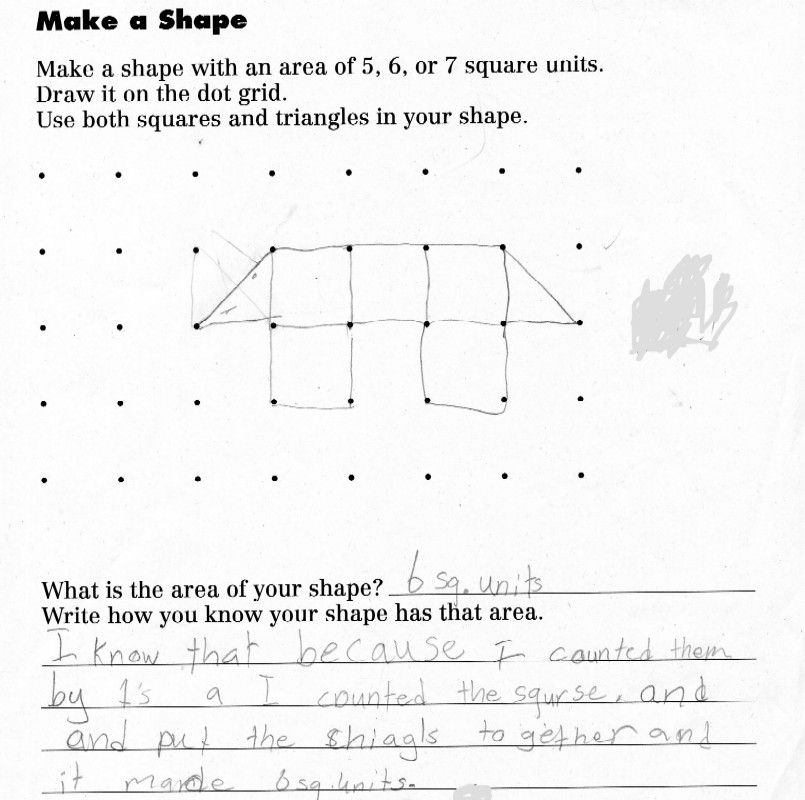 Make a Shape
Make a shape with an area of 5, 6, or 7 square units.
Draw it on the dot grid.
Use both squares and triangles in your shape.
What is the area of your shape? 6 sq. units
Write how you know your shape has that area.
I know that because I counted them
by 1's a I counted the squrse, and
and put the shiagls together and
it marde 6 sq. units.